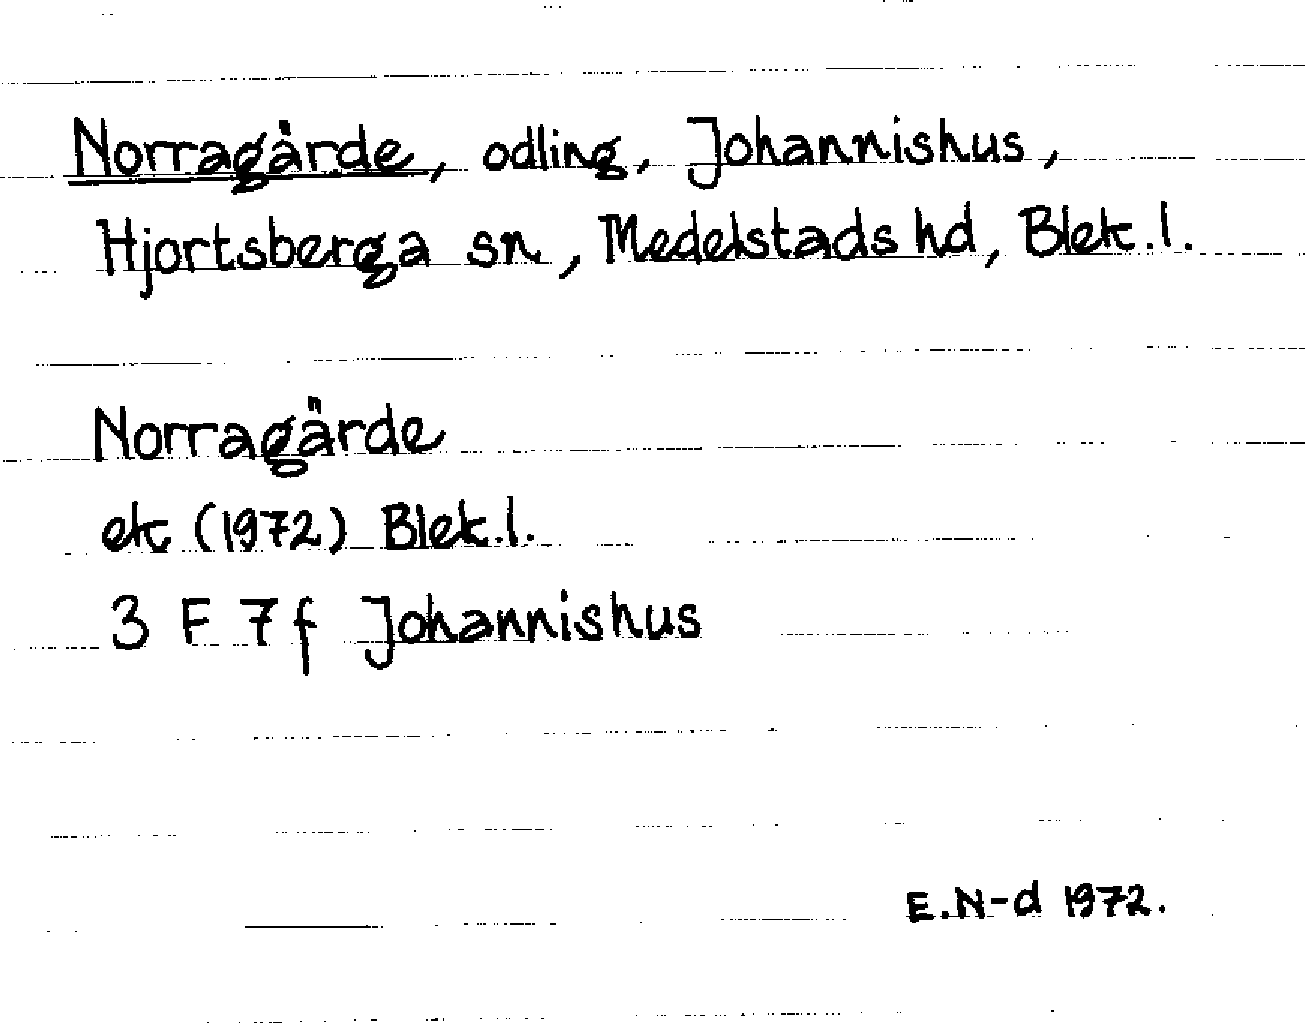 Norragärde, odling, Johannishus,
Hjortsberga sn, Medelstads hd, Blek.l.
Norragärde
ek (1972) Blek.l.
3 F 7 f Johannishus
E.N-d 1972.